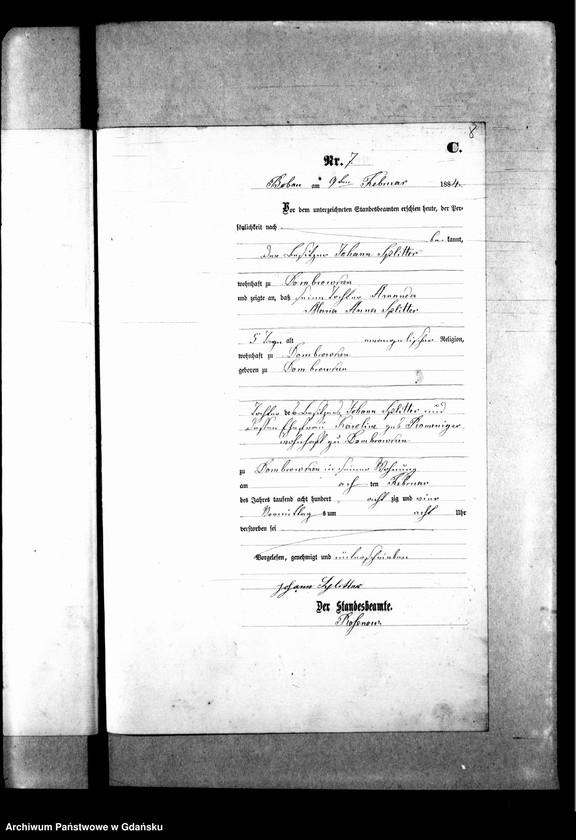 8
C.
Nr. 7.
Boban am 9ten Februar 1884.
Vor dem unterzeichneten Standesbeamten erschien heute, der Per-
sönlichkeit nach
be kannt,
der Besitzer Johann Splitter
wohnhaft zu Dombrowken
und zeigte an, daß seine Tochter Amanda
Maria Anna Splitter
5 Tage alt evangelischer Religion,
wohnhaft zu Dombrowken
geboren zu Dombrowken
Tochter des Besitzers Johann Splitter und
dessen Ehefrau Karoline geb.
wohnhaft zu Dombrowken
zu Dombrowken in seiner Wohnung
am ach ten Februar
des Jahres tausend acht hundert acht zig und vier
Vormittag s um acht Uhr
verstorben sei
Vorgelesen, genehmigt und unterschrieben
Johann Splitter
Der Standesbeamte.
Rosenow.
Archiwum Państwowe w Gdańsku